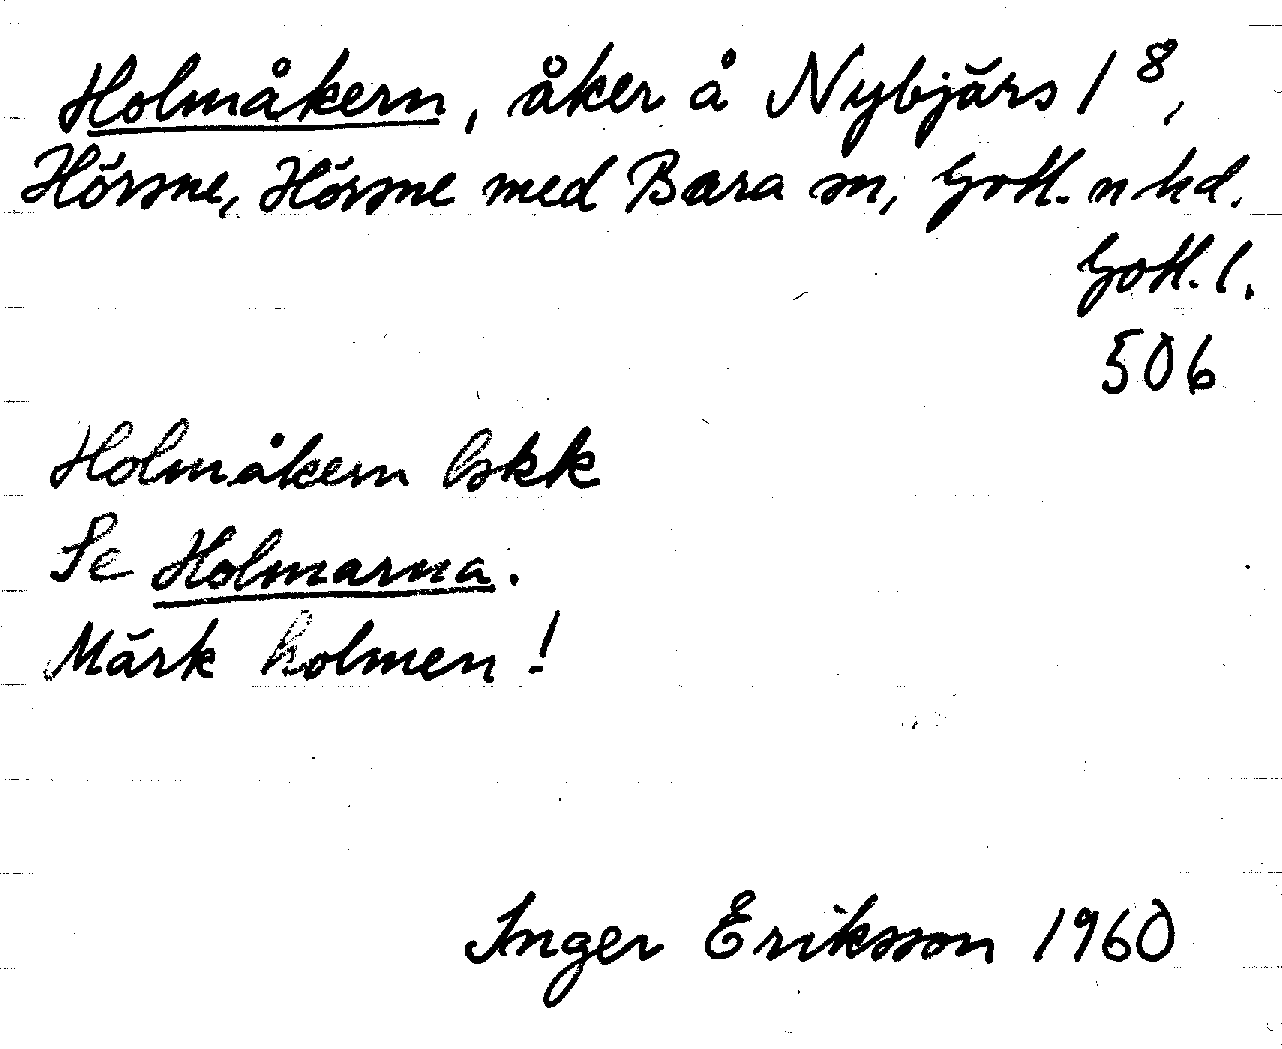 Holmåkern, åker å Nybjärs 1⁸,
Hörsne, Hörsne med Bara sn, Gotl. n hd.
Gotl. l.
506
Holmåkern lskk
Se Holmarna.
Märk holmen!
Inger Eriksson 1960